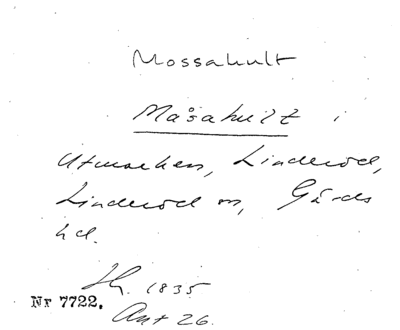 Mossahult
Måsahult i
Utmarken, Linderöd,
Linderöd sn, Gärds
hd.
Sk. 1835
Nr 7722.
Akt 26.